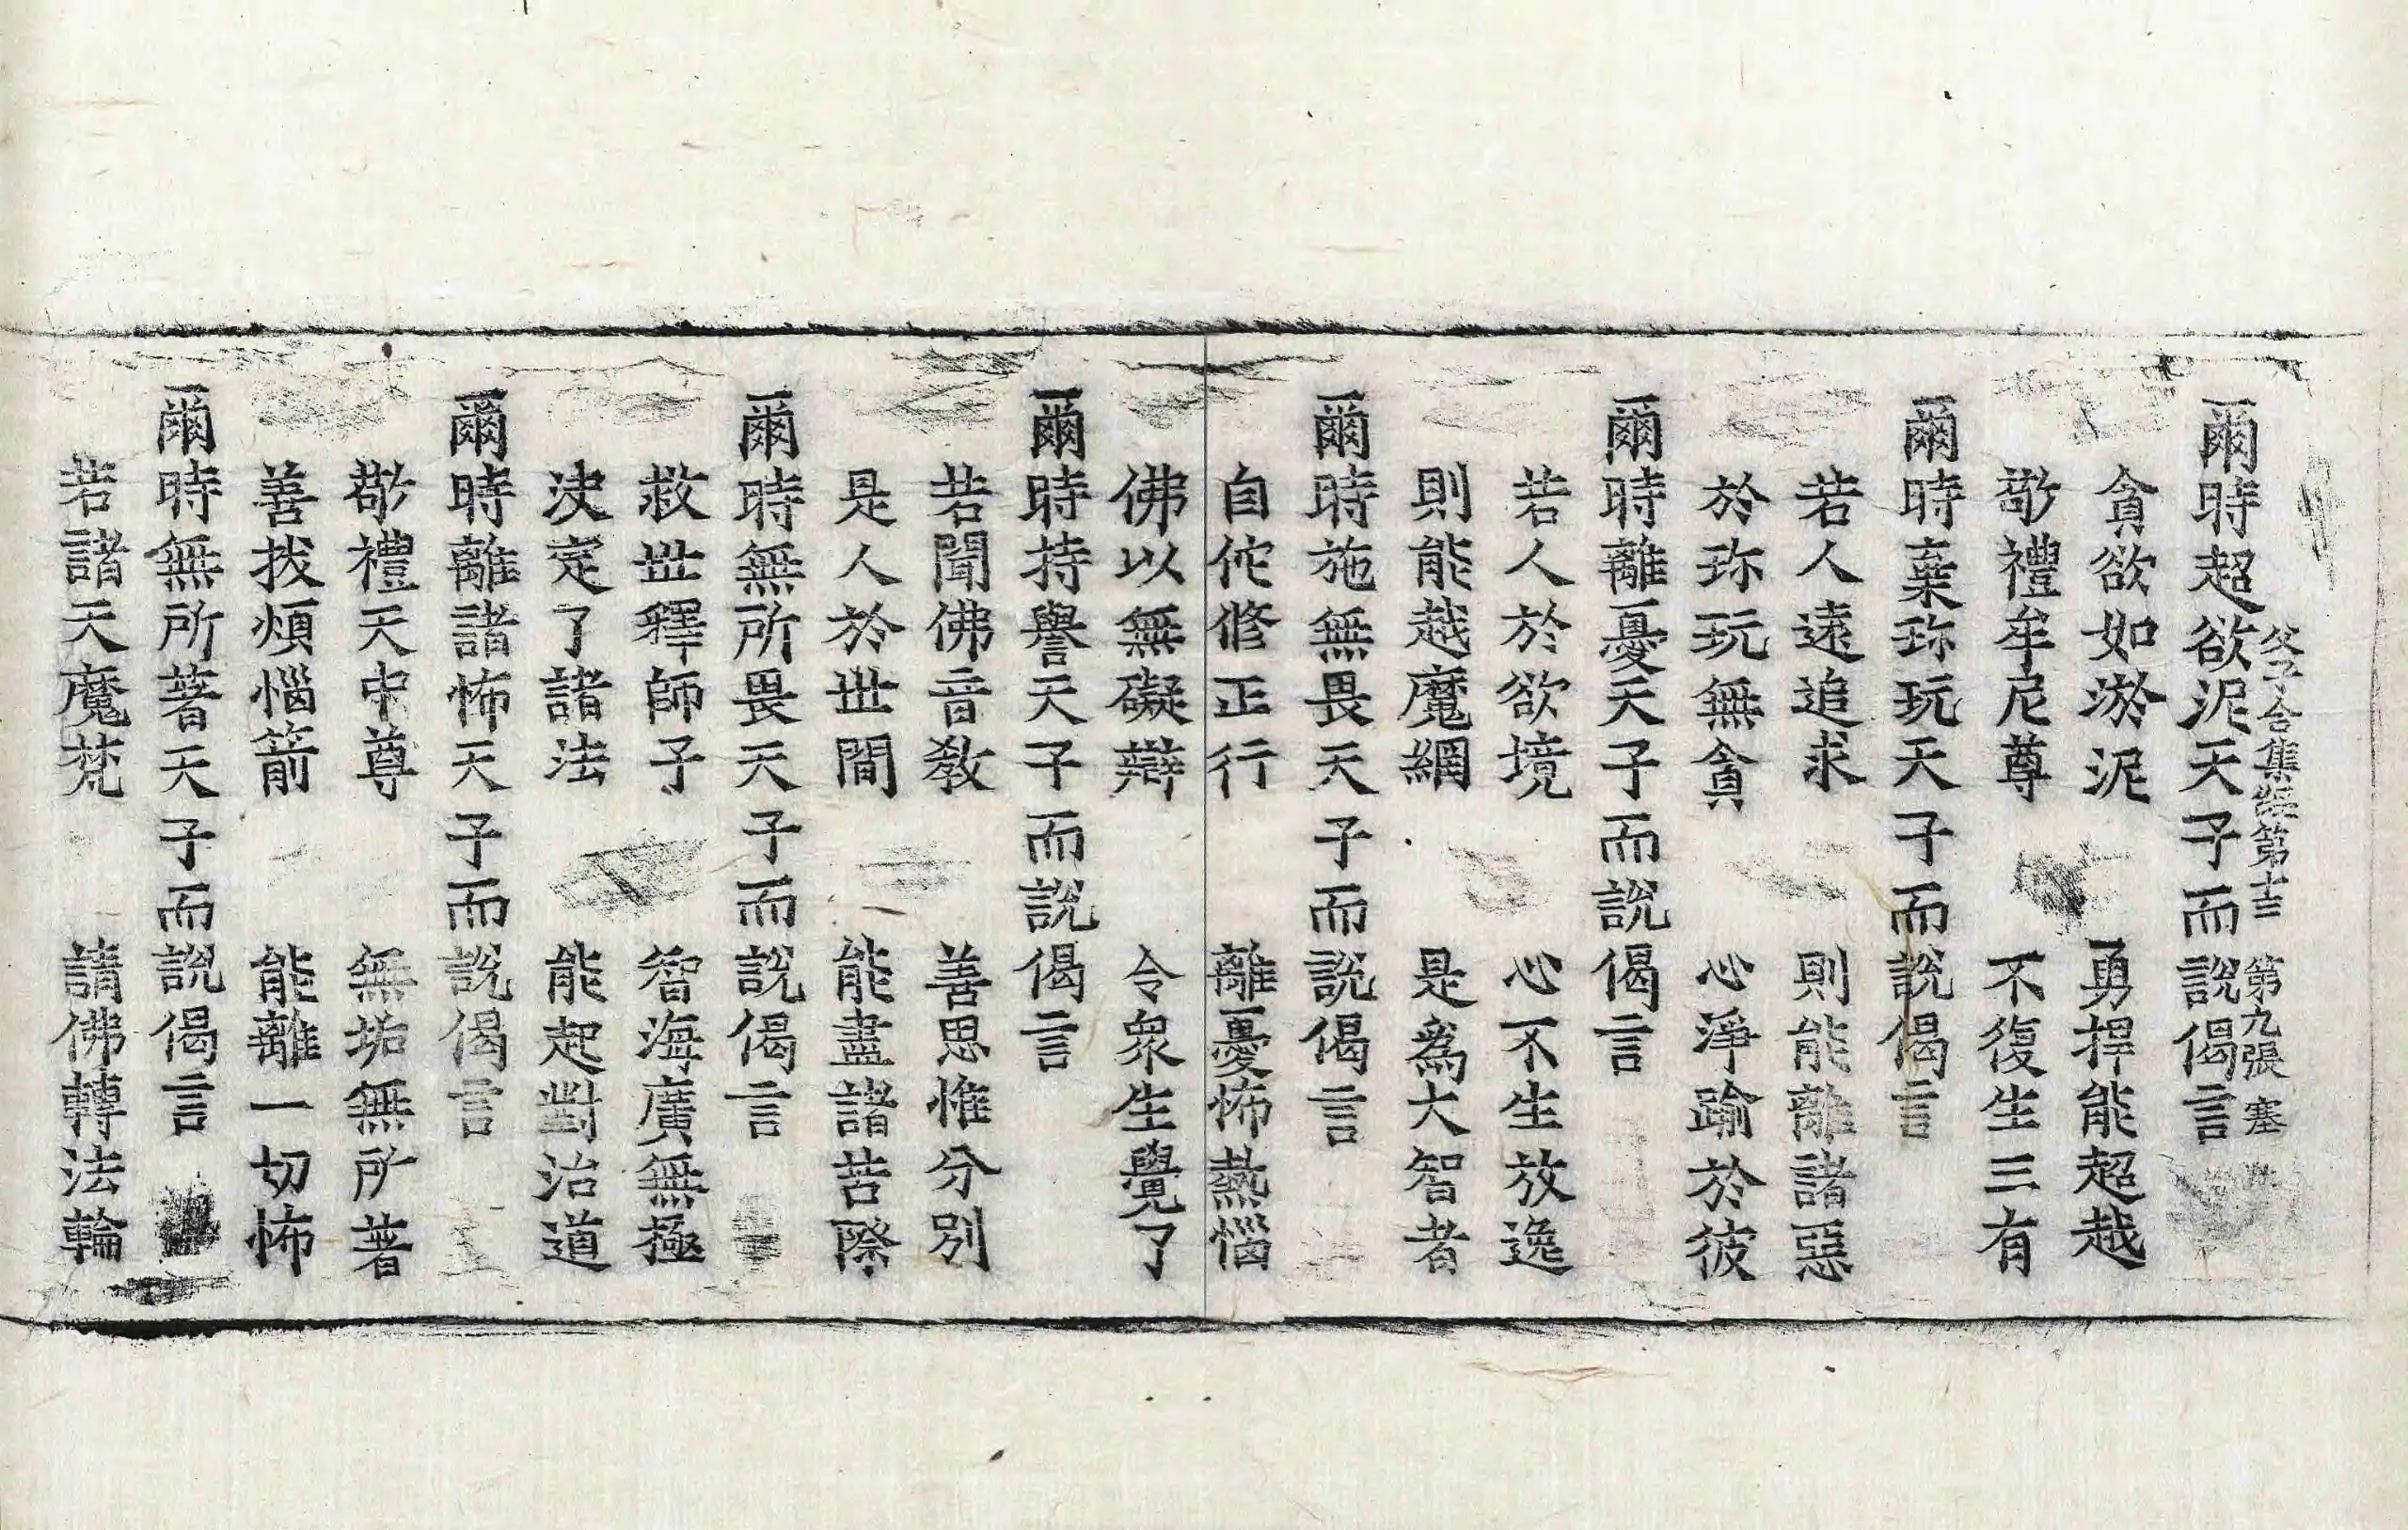 父子合集經第十三　第九張　塞
爾時超欲泥天子而說偈言
貪欲如淤泥　勇捍能超越
敬禮牟尼尊　不復生三有
爾時棄珎玩天子而說偈言
若人遠追求　則能離諸惡
於珎玩無貪　心淨踰於彼
爾時離憂天子而說偈言
若人於欲境　心不生放逸
則能越魔網　是爲大智者
爾時施無畏天子而說偈言
自佗修正行　離憂怖熱惱
佛以無礙辯　令衆生覺了
爾時持譽天子而說偈言
若聞佛音教　善思惟分別
是人於世間　能盡諸苦際
爾時無所畏天子而說偈言
救世釋師子　智海廣無極
決定了諸法　能起對治道
爾時離諸怖天子而說偈言
敬禮天中尊　無垢無所著
善拔煩惱箭　能離一切怖
爾時無所著天子而說偈言
若諸天魔梵　請佛轉法輪